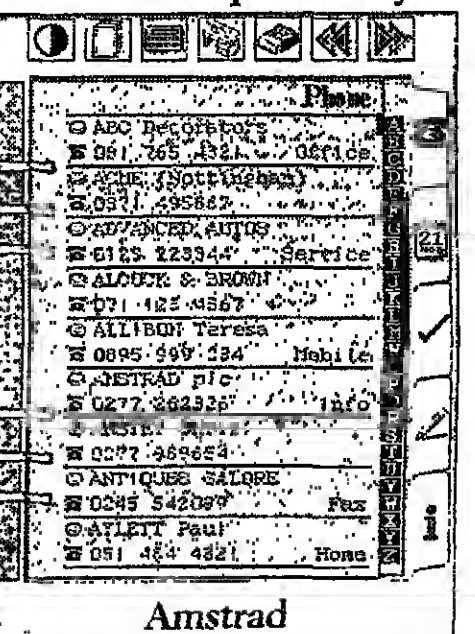 Phone
ABC Decorators
051 265 4321 Office
ACME (Nottingham)
0371 495867
ADVANCED AUTOS
0123 223344 Service
ALCOCK & BROWN
071 123 4567
ALLIBON Teresa
0895 999 234 Mobile
AMSTRAD plc
0277 262326 Info
0277 969654
ANTIQUES GALORE
0245 542099 Fax
ATLETT Paul
051 464 4321 Home
A
B
C
D
E
F
G
H
I
J
K
L
M
P
S
T
U
V
W
X
Y
Z
3
21
Amstrad